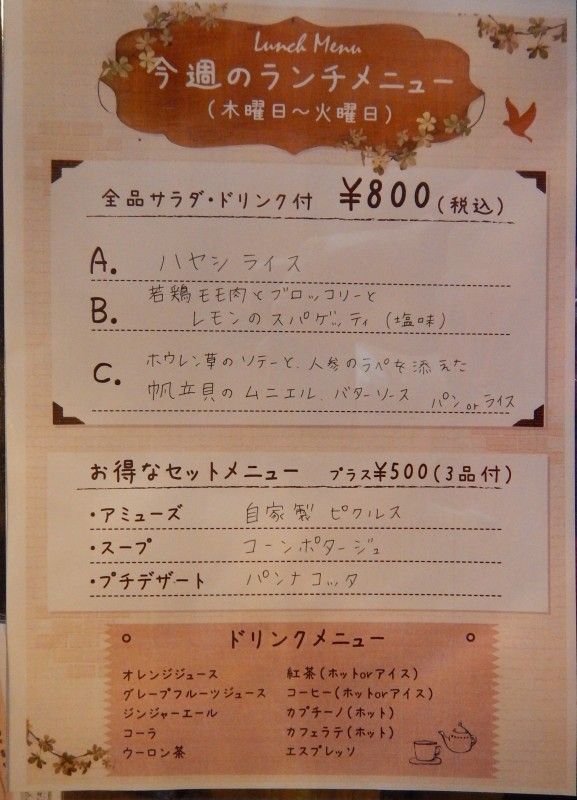 Lunch Menu
今週のランチメニュー
(木曜日～火曜日)
全品サラダ・ドリンク付 ¥800(税込)
A. ハヤシライス
B. 若鶏モモ肉とブロッコリーと
レモンのスパゲッティ (塩味)
C. ホウレン草のソテーと、人参のラペを添えた
帆立貝のムニエル、バターソース パンorライス
お得なセットメニュー プラス¥500(3品付)
・アミューズ 自家製 ピクルス
・スープ コーンポタージュ
・プチデザート パンナコッタ
ドリンクメニュー
オレンジジュース 紅茶(ホットorアイス)
グレープフルーツジュース コーヒー(ホットorアイス)
ジンジャーエール カプチーノ(ホット)
コーラ カフェラテ(ホット)
ウーロン茶 エスプレッソ